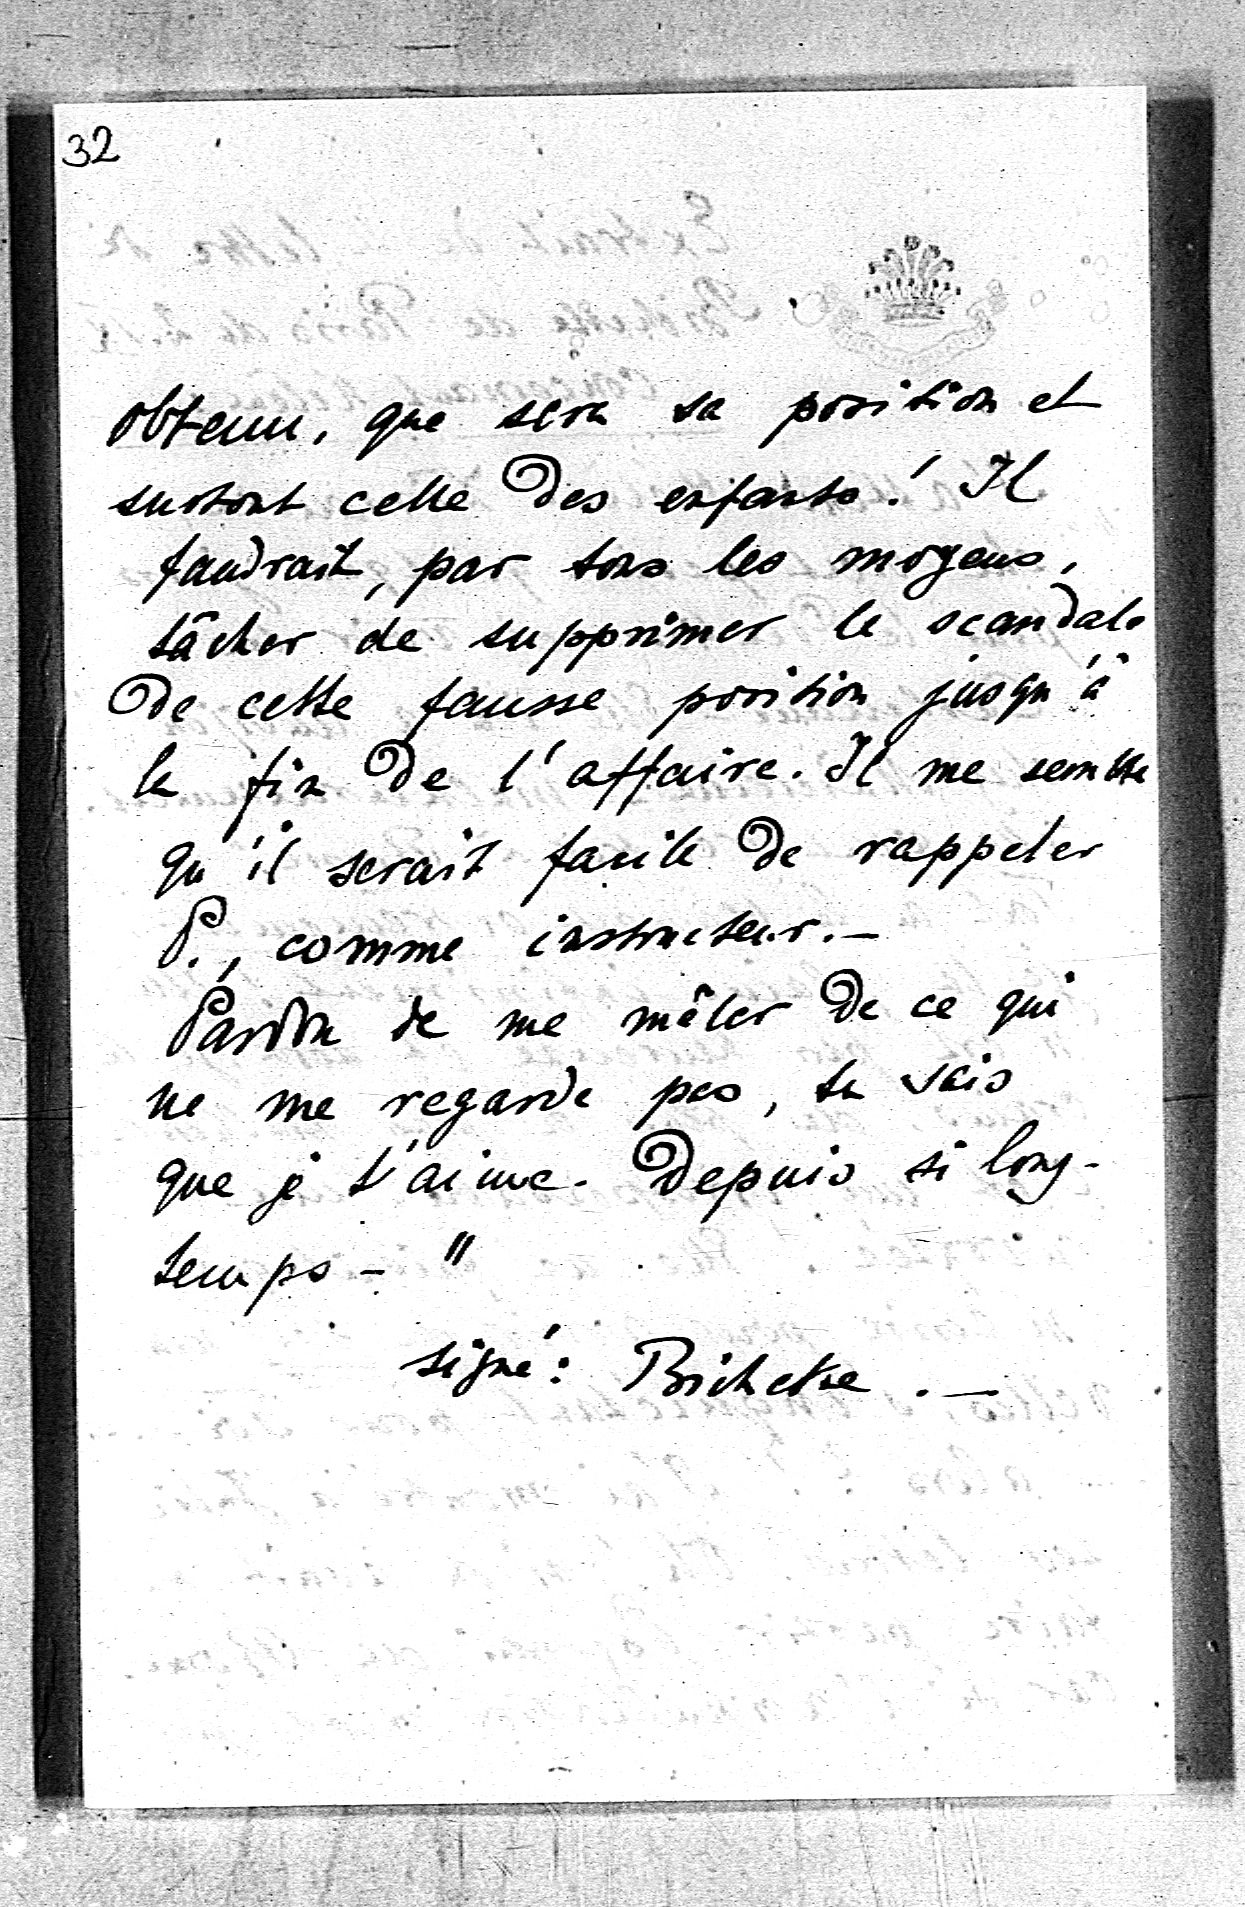 32
obtenu, que sera sa position et
surtout celle des enfants! Il
faudrait, par tous les moyens,
tâcher de supprimer le scandale
de cette fausse position jusqu'à
la fin de l'affaire. Il me semble
qu'il serait facile de rappeler
P., comme instructeur.—
Pardon de me mêler de ce qui
ne me regarde pas, tu sais
que je t'aime. Depuis si long-
temps – "
signé: Bichette.—